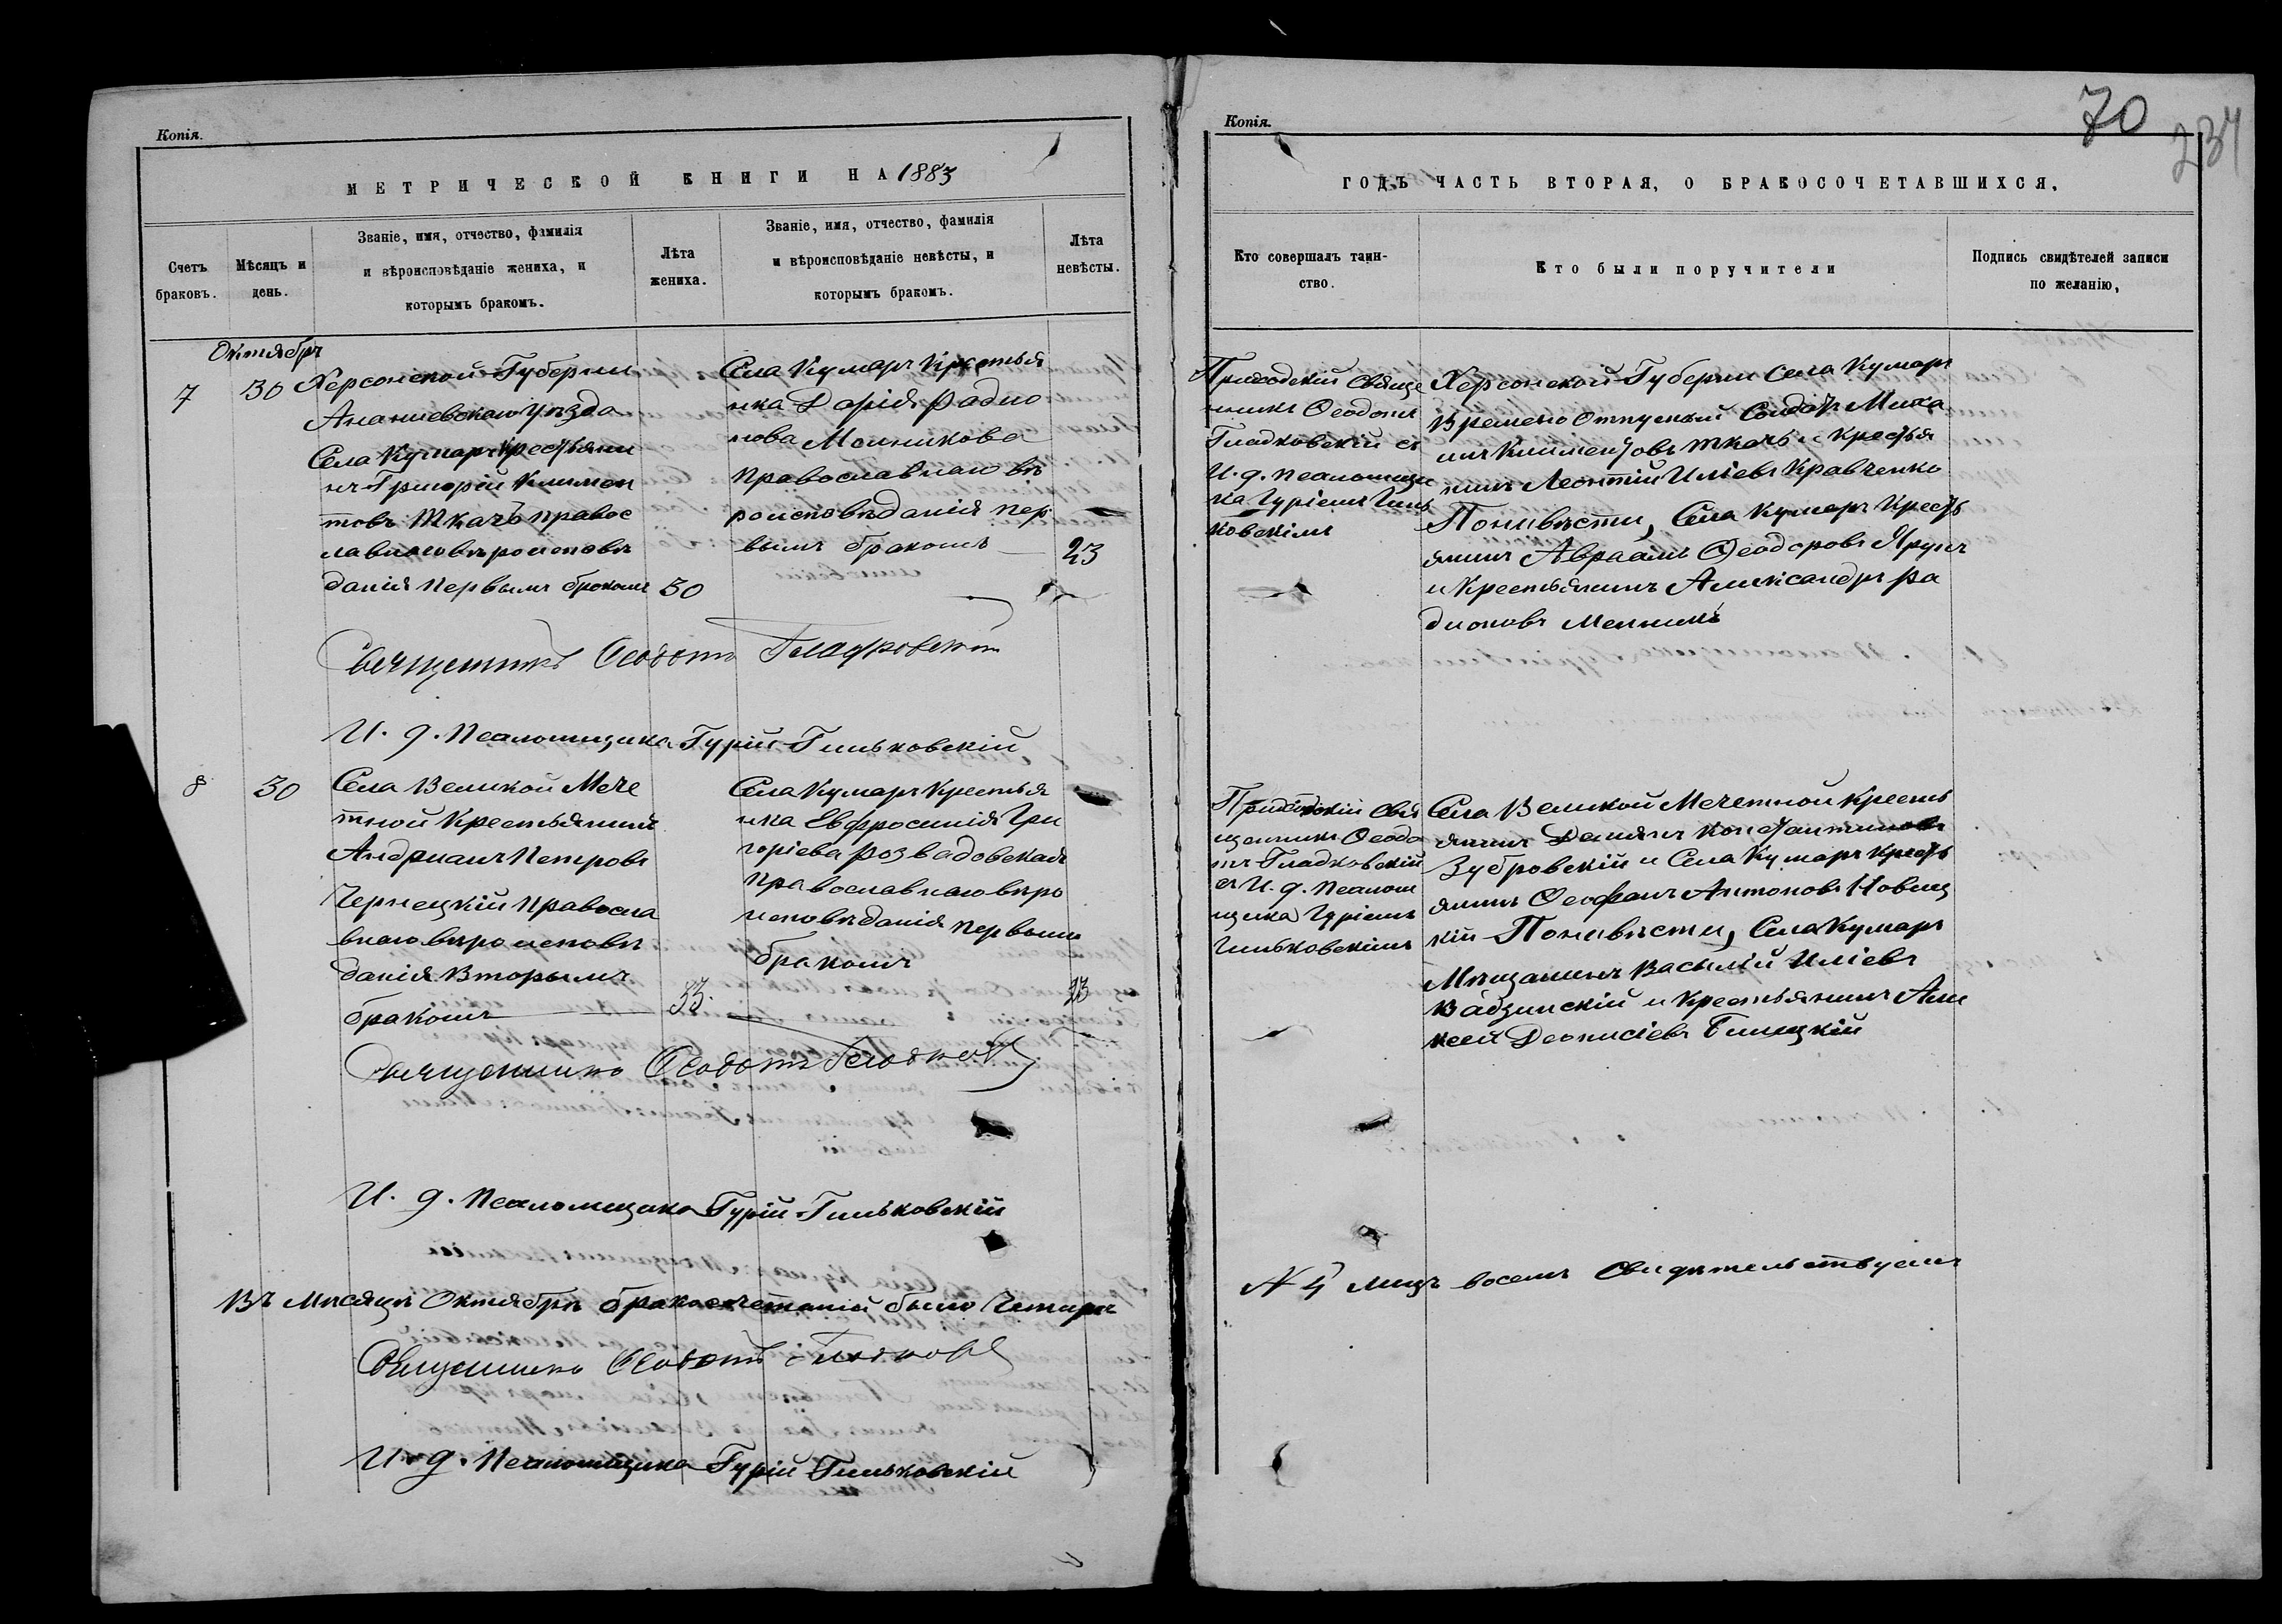 Копія.
МЕТРИЧЕСКОЙ КНИГИ НА 1883
Счетъ браковъ.
Мѣсяцъ и день.
Званіе, имя, отчество, фамилія
и вѣроисповѣданіе жениха, и
которымъ бракомъ.
Лѣта жениха.
Званіе, имя, отчество, фамилія
и вѣроисповѣданіе невѣсты, и
которымъ бракомъ.
Лѣта невѣсты.
Октябрь
7
30
Херсонской Губерніи
Ананіевскаго уѣзда
Села Кумаръ Крестьяни
нъ Григорій Климен
товъ Ткачъ правос
лавнаго вѣроисповѣ
данія первымъ бракомъ
30
Села Кумаръ Крестья
нка Дарія Радио
нова Мельникова
Православнаго вѣ
роисповѣданія пер
вымъ бракомъ
23
Священникъ Ѳеодотъ Гладковскій
И. д. Псаломщика Гурій Гильковскій
8
30
Села Великой Мече
тной Крестьянинъ
Андрианъ Петровъ
Чернецкій Правосла
внаго вѣроисповѣ
данія Вторымъ
бракомъ
33.
Села Кумаръ Крестья
нка Евфросинія Гри
горіева Розвадовская
православнаго вѣро
исповѣданія первымъ
бракомъ
23
Священникъ Ѳеодотъ Гладков
И. д. Псаломщика Гурій Гильковскій
Въ Мѣсяцѣ Октябрѣ бракосочетаній было Четыре
Священникъ Ѳеодотъ Гладков
И. д. Псаломщика Гурій Гильковскій
Копія.
70
234
ГОДЪ ЧАСТЬ ВТОРАЯ, О БРАКОСОЧЕТАВШИХСЯ.
Кто совершалъ таин-
ство.
Кто были поручители
Подпись свидѣтелей записи
по желанію,
Приходскій Свяще
нникъ Ѳеодотъ
Гладковскій съ
И. д. псаломщи
ка Гуріемъ Гиль
ковскимъ
Херсонской Губерніи Села Кумаръ
Временно Отпускный Солдатъ Миха
илъ Климентовъ Ткачъ и крестья
нинъ Леонтій Иліевъ Кравченко
По невѣсти, Села Кумаръ Кресть
янинъ Авраамъ Ѳеодоровъ Ярунъ
и Крестьянинъ Александръ Ра
дионовъ Мельникъ
Приходскій Свя
щенникъ Ѳеодо
тъ Гладковскій
съ И. д. псалом
щика Гуріемъ
Гильковскимъ
Села Великой Мечетной Кресть
янинъ Демянъ Константиновъ
Зубровскій и Села Кумаръ Кресть
янинъ Ѳеофанъ Антоновъ Новиц
кій По невѣсти, Села Кумаръ
Мѣщанинъ Василій Иліевъ
Вадзинскій и Крестьянинъ Але
ксей Деонисіевъ Билецкій
№ 4 лицъ восемъ Свидѣтельствуемъ